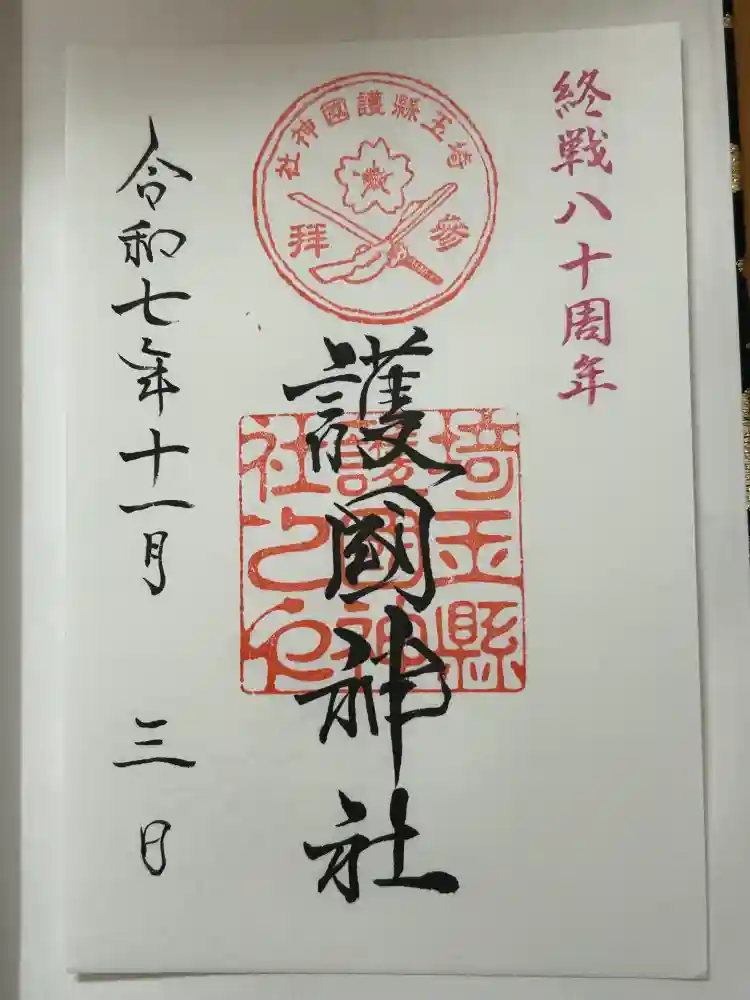 終戦八十周年
埼玉縣護國神社
參拜
護國神社
埼玉縣
護國神
社之印
令和七年十一月 三日